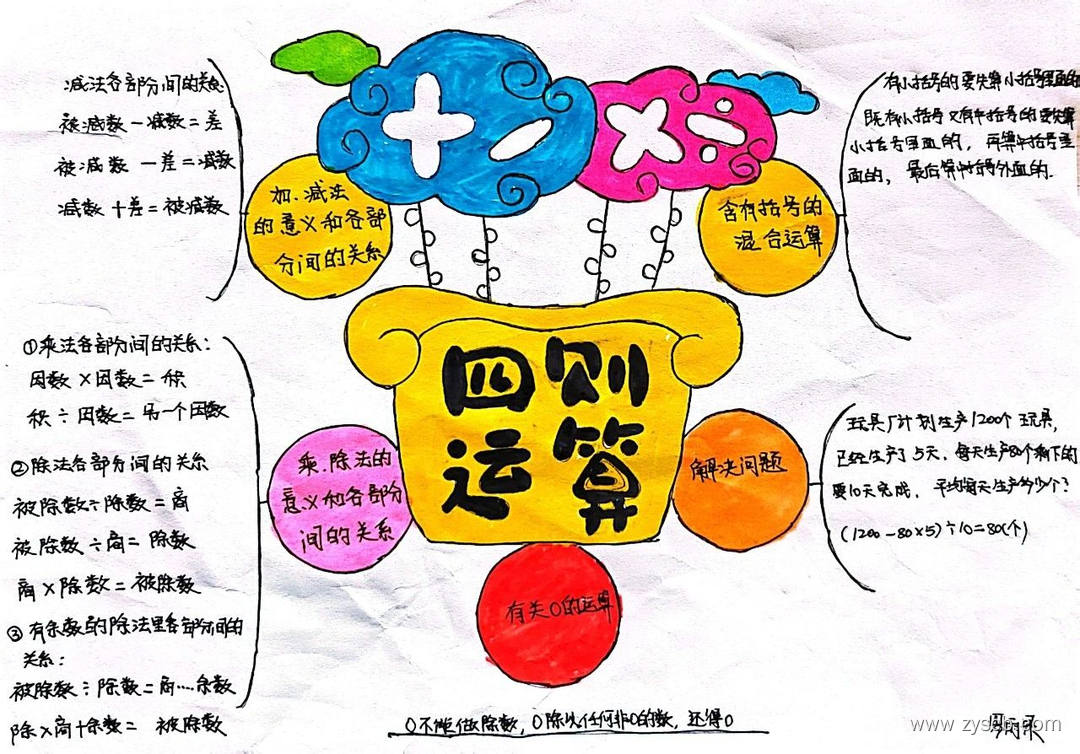 减法各部分间的关系
被减数－减数＝差
被减数－差＝减数
减数＋差＝被减数
加、减法
的意义和各部
分间的关系
含有括号的
混合运算
有小括号的要先算小括号里面的
既有小括号又有中括号的要先算
小括号里面的，再算中括号里
面的，最后算中括号外面的.
四则
运算
①乘法各部分间的关系：
因数×因数＝积
积÷因数＝另一个因数
②除法各部分间的关系
被除数÷除数＝商
被除数÷商＝除数
商×除数＝被除数
③有余数的除法里各部分间的
关系：
被除数÷除数＝商……余数
除×商＋余数＝被除数
乘、除法的
意义和各部分
间的关系
解决问题
玩具厂计划生产1200个玩具，
已经生产了5天，每天生产80个剩下的
要10天完成，平均每天生产多少个？
(1200－80×5)÷10＝80(个)
有关0的运算
0不能做除数，0除以任何非0的数，还得0
www.zyszb.com